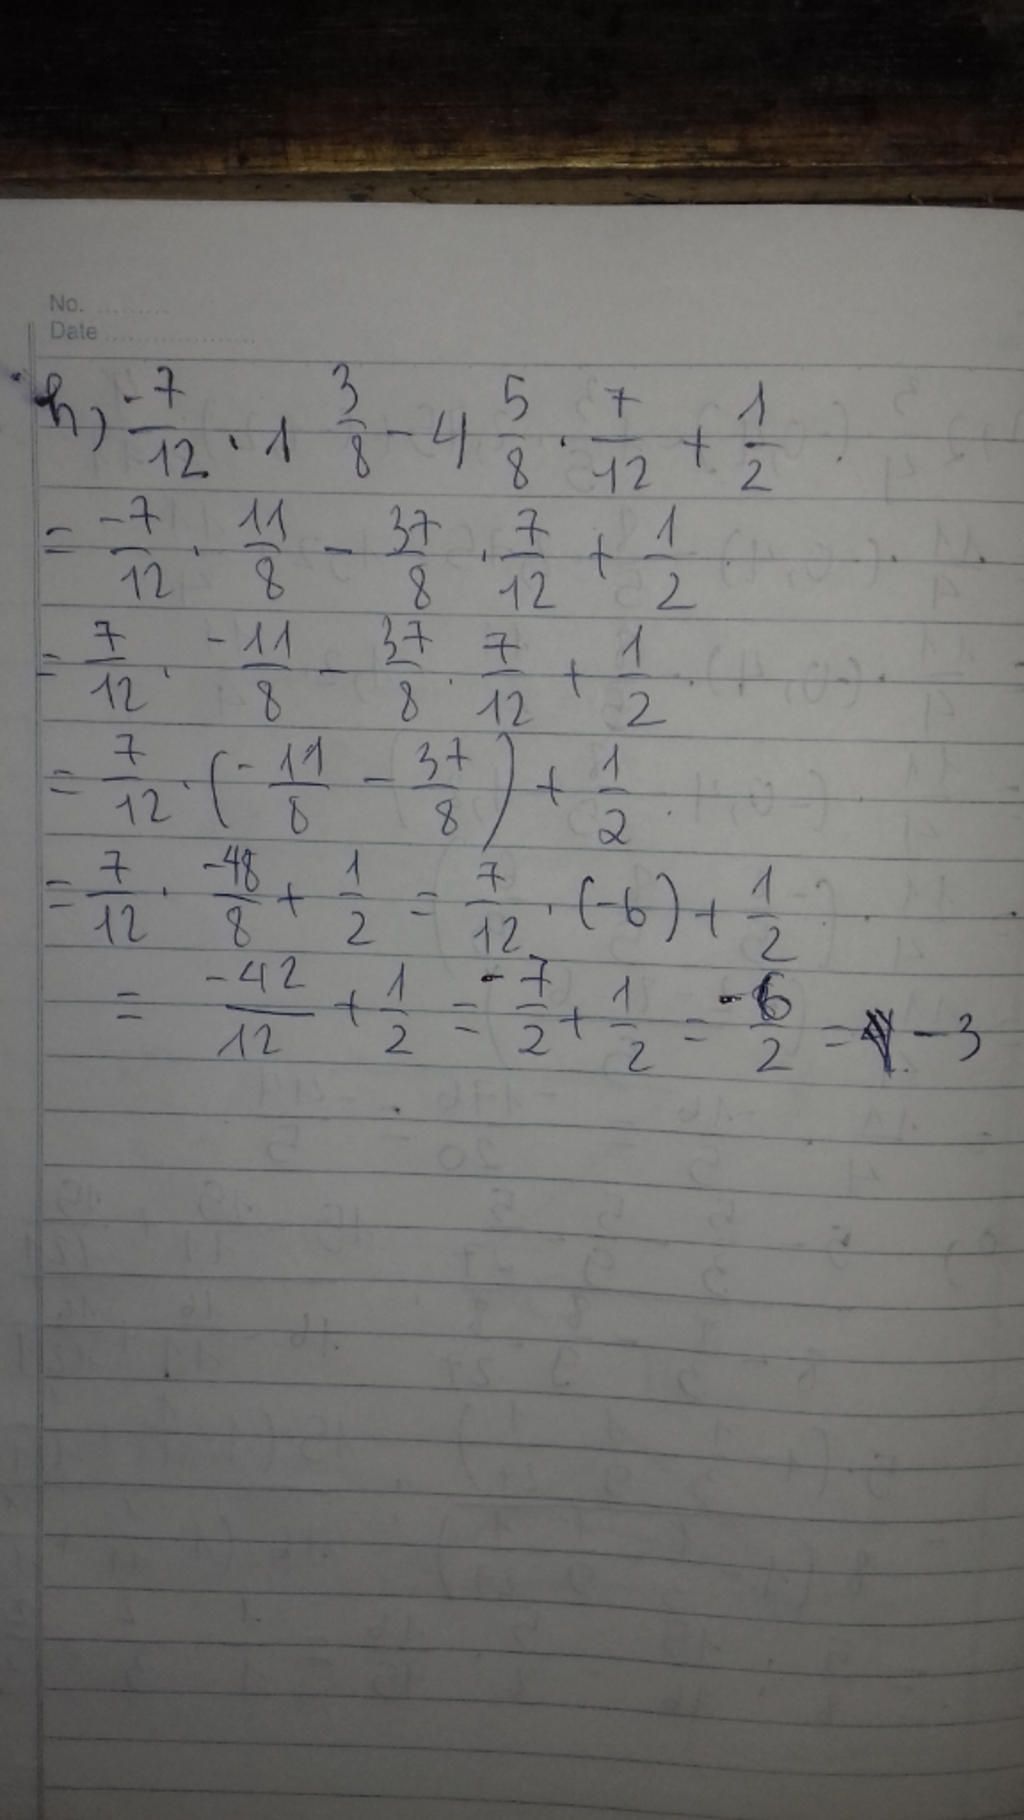 No. .........
Date ...................
h) -7/12 . 1 3/8 - 4 5/8 . 7/12 + 1/2
= -7/12 . 11/8 - 37/8 . 7/12 + 1/2
= 7/12 . -11/8 - 37/8 . 7/12 + 1/2
= 7/12 . (-11/8 - 37/8) + 1/2
= 7/12 . -48/8 + 1/2 = 7/12 . (-6) + 1/2
= -42/12 + 1/2 = -7/2 + 1/2 = -6/2 = -3